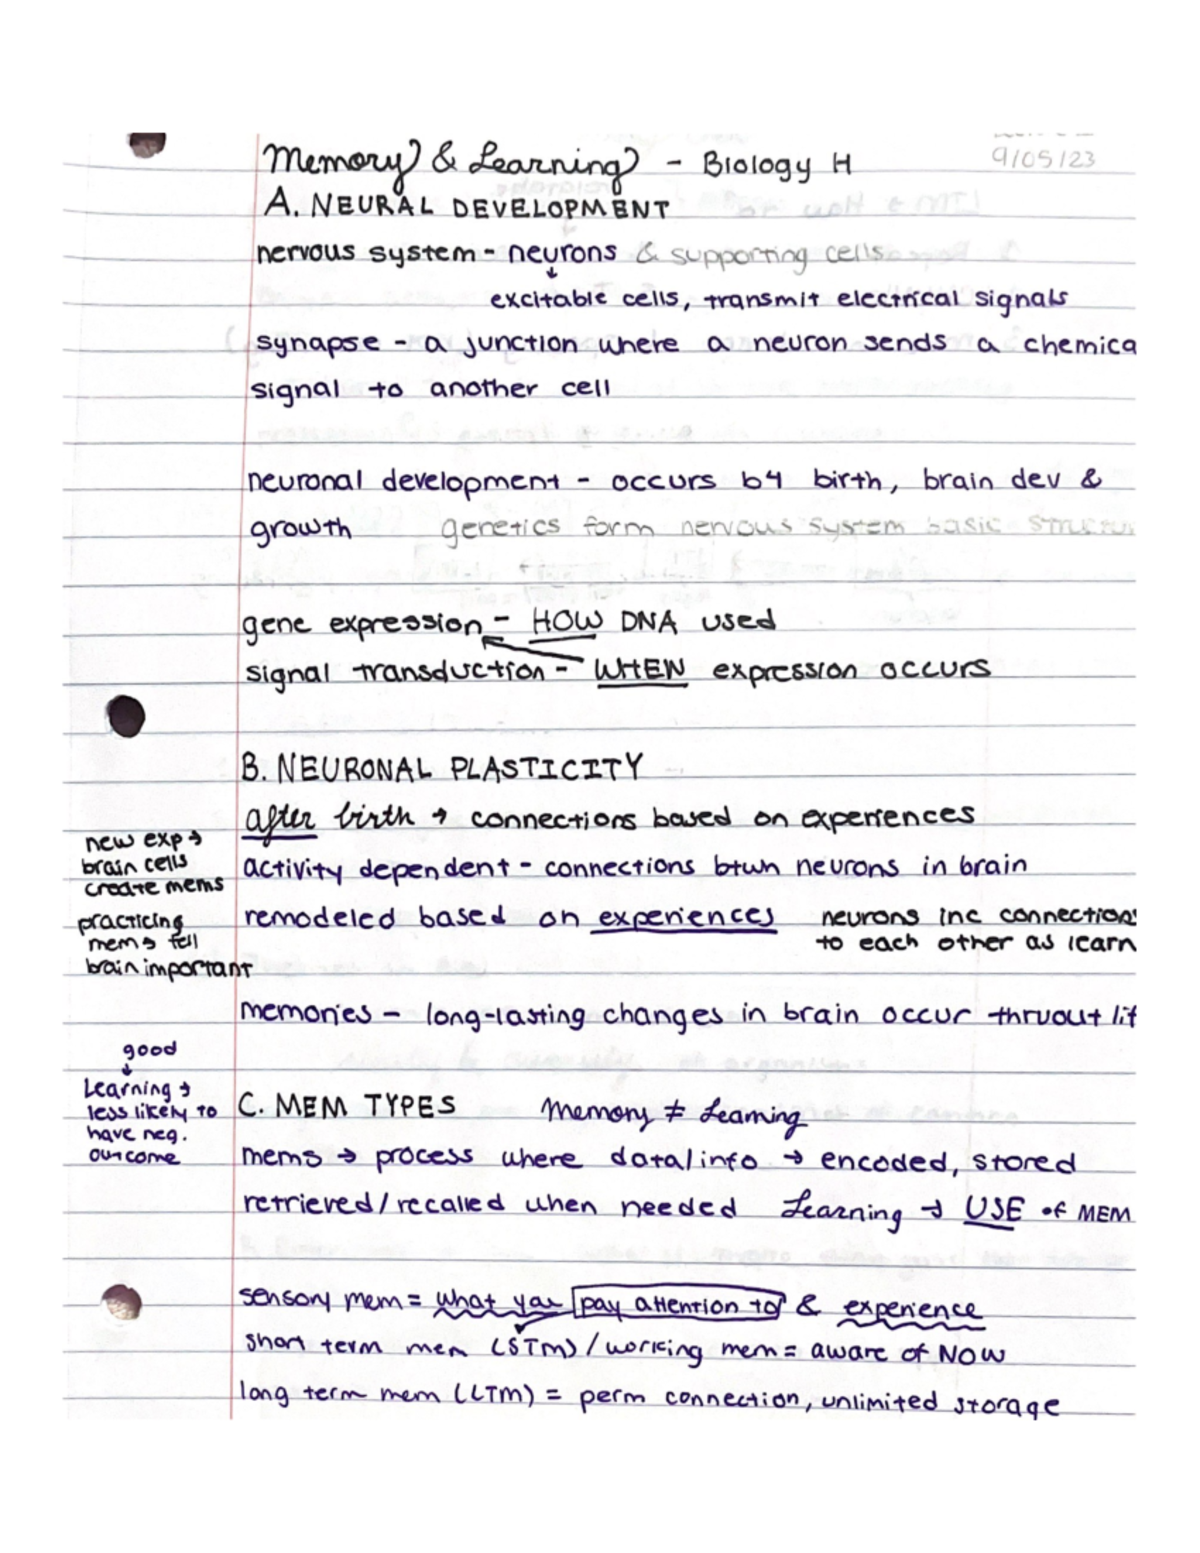 Memory & Learning - Biology H
9/05/23
A. NEURAL DEVELOPMENT
nervous system - neurons & supporting cells
↓
excitable cells, transmit electrical signals
synapse - a junction where a neuron sends a chemica
signal to another cell
neuronal development - occurs b4 birth, brain dev &
growth genetics form nervous system basic
gene expression - HOW DNA used
signal transduction - WHEN expression occurs
B. NEURONAL PLASTICITY
after birth → connections based on experiences
new exp →
brain cells
create mems
activity dependent - connections btwn neurons in brain
remodeled based on experiences
neurons inc connections
to each other as learn
practicing
mem → tell
brain important
memories - long-lasting changes in brain occur thruout lif
good
↓
Learning →
less likely to
have neg.
outcome
C. MEM TYPES Memory ≠ Learning
mems → process where data/info → encoded, stored
retrieved/recalled when needed Learning → USE of MEM
sensory mem = what you pay attention to & experience
short term mem (STM) / working mem = aware of NOW
long term mem (LTM) = perm connection, unlimited storage